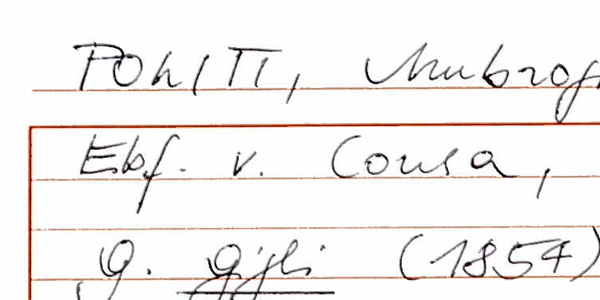 POLITI, Ambrog
Ebf. v. Consa,
G. Gigli (1854)